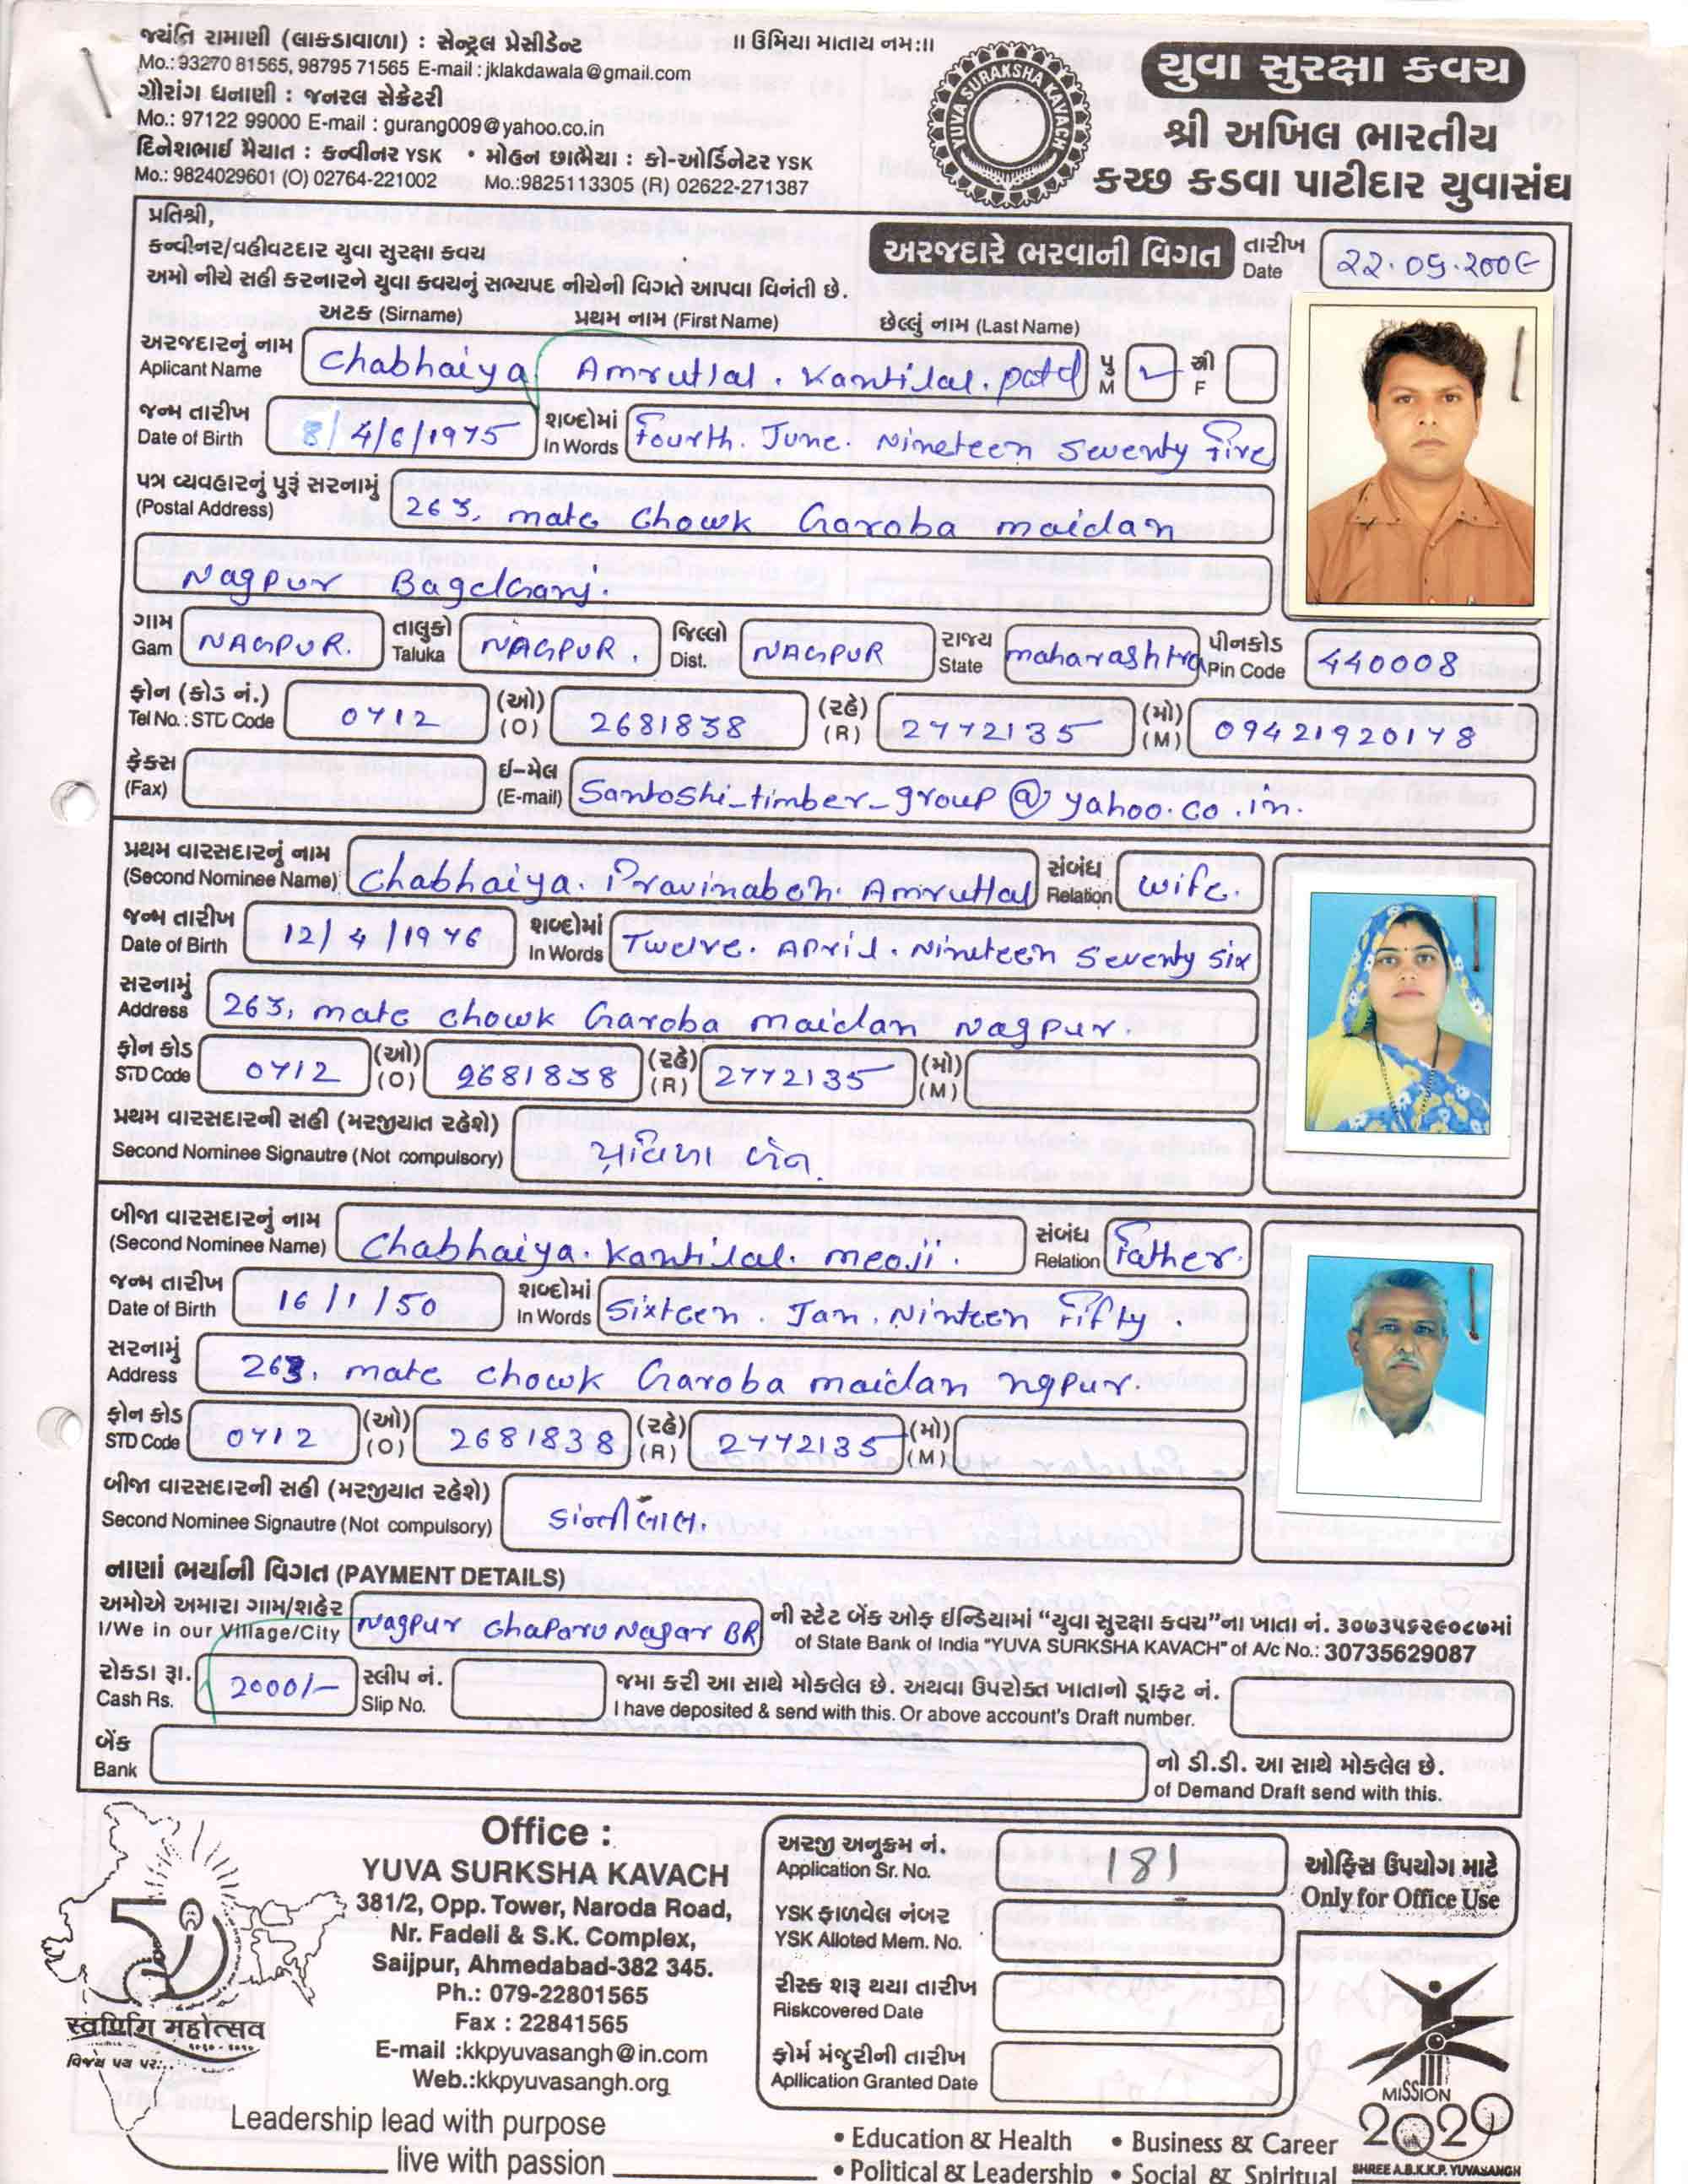 જયંતિ રામાણી (લાકડાવાળા) : સેન્ટ્રલ પ્રેસીડેન્ટ
Mo.: 93270 81565, 98795 71565 E-mail : jklakdawala@gmail.com
ગૌરાંગ ધનાણી : જનરલ સેક્રેટરી
Mo.: 97122 99000 E-mail : gurang009@yahoo.co.in
દિનેશભાઈ મૈયાત : કન્વીનર YSK • મોહન છાભૈયા : કો-ઓર્ડિનેટર YSK
Mo.: 9824029601 (O) 02764-221002 Mo.:9825113305 (R) 02622-271387
॥ ઉમિયા માતાય નમઃ॥
YUVA SURAKSHA KAVACH
યુવા સુરક્ષા કવચ
શ્રી અખિલ ભારતીય
કચ્છ કડવા પાટીદાર યુવાસંઘ
પ્રતિશ્રી,
કન્વીનર/વહીવટદાર યુવા સુરક્ષા કવચ
અમો નીચે સહી કરનારને યુવા કવચનું સભ્યપદ નીચેની વિગતે આપવા વિનંતી છે.
અરજદારે ભરવાની વિગત
તારીખ Date 22.09.2009
અટક (Sirname) પ્રથમ નામ (First Name) છેલ્લું નામ (Last Name)
અરજદારનું નામ Aplicant Name Chabhaiya Amrutlal . Kantilal . patel પુ M ✓ સ્ત્રી F
જન્મ તારીખ Date of Birth 4/6/1975 શબ્દોમાં In Words Fourth. June. Nineteen Seventy Five
પત્ર વ્યવહારનું પુરૂં સરનામું (Postal Address) 263, mate Chowk Garoba maidan
Nagpur Bagadganj.
ગામ Gam NAGPUR. તાલુકો Taluka NAGPUR. જિલ્લો Dist. NAGPUR રાજ્ય State maharashtra પીનકોડ Pin Code 440008
ફોન (કોડ નં.) Tel No. : STD Code 0712 (ઓ) (O) 2681838 (રહે) (R) 2772135 (મો) (M) 09421920178
ફેક્સ (Fax) ઈ-મેલ (E-mail) Santoshi_timber_group@yahoo.co.in.
પ્રથમ વારસદારનું નામ (Second Nominee Name) Chabhaiya. Pravinaben. Amrutlal સંબંધ Relation wife.
જન્મ તારીખ Date of Birth 12/4/1976 શબ્દોમાં In Words Twelve. April. Nineteen Seventy Six
સરનામું Address 263, mate chowk Garoba maidan Nagpur.
ફોન કોડ STD Code 0712 (ઓ) (O) 2681838 (રહે) (R) 2772135 (મો) (M)
પ્રથમ વારસદારની સહી (મરજીયાત રહેશે)
Second Nominee Signautre (Not compulsory)
બીજા વારસદારનું નામ (Second Nominee Name) Chabhaiya. Kantilal. meoji. સંબંધ Relation Father.
જન્મ તારીખ Date of Birth 16/1/50 શબ્દોમાં In Words Sixteen. Jan. Ninteen Fifty.
સરનામું Address 263, mate chowk Garoba maidan ngpur.
ફોન કોડ STD Code 0712 (ઓ) (O) 2681838 (રહે) (R) 2772135 (મો) (M)
બીજા વારસદારની સહી (મરજીયાત રહેશે)
Second Nominee Signautre (Not compulsory) કાન્તીલાલ.
નાણાં ભર્યાની વિગત (PAYMENT DETAILS)
અમોએ અમારા ગામ/શહેર I/We in our Village/City Nagpur Chaparu Nagar BR ની સ્ટેટ બેંક ઓફ ઇન્ડિયામાં "યુવા સુરક્ષા કવચ"ના ખાતા નં. ૩૦૭૩૫૬૨૯૦૮૭માં
of State Bank of India "YUVA SURKSHA KAVACH" of A/c No.: 30735629087
રોકડા રૂા. Cash Rs. 2000/- સ્લીપ નં. Slip No. જમા કરી આ સાથે મોકલેલ છે. અથવા ઉપરોક્ત ખાતાનો ડ્રાફ્ટ નં.
I have deposited & send with this. Or above account's Draft number.
બેંક Bank નો ડી.ડી. આ સાથે મોકલેલ છે.
of Demand Draft send with this.
50
स्वर्णिम महोत्सव
Office :
YUVA SURKSHA KAVACH
381/2, Opp. Tower, Naroda Road,
Nr. Fadeli & S.K. Complex,
Saijpur, Ahmedabad-382 345.
Ph.: 079-22801565
Fax : 22841565
E-mail :kkpyuvasangh@in.com
Web.:kkpyuvasangh.org
Leadership lead with purpose
live with passion
અરજી અનુક્રમ નં. Application Sr. No. 181
YSK ફાળવેલ નંબર YSK Alloted Mem. No.
રીસ્ક શરૂ થયા તારીખ Riskcovered Date
ફોર્મ મંજુરીની તારીખ Apllication Granted Date
ઓફિસ ઉપયોગ માટે
Only for Office Use
MISSION
2020
SHREE A.B.K.K.P. YUVASANGH
• Education & Health • Business & Career
• Political & Leadership • Social & Spiritual